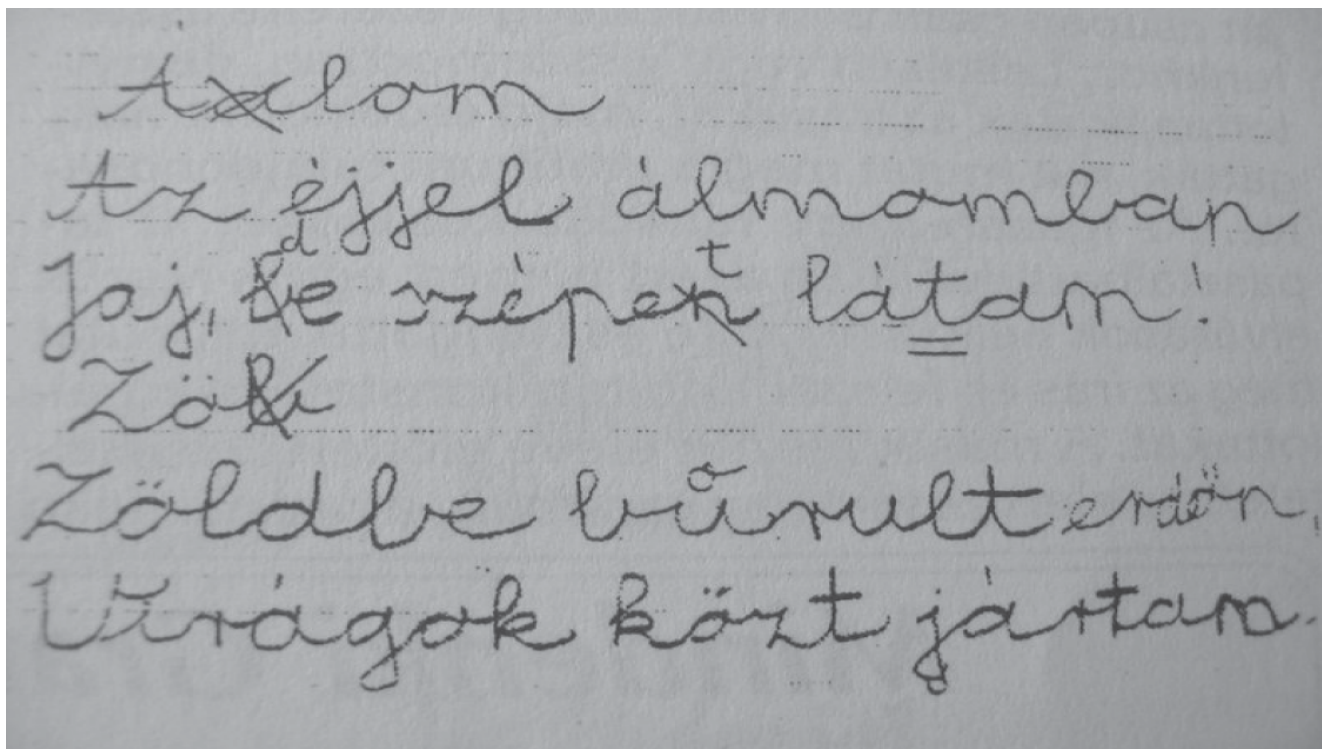 Álom
Az éjjel álmomban
Jaj, de szépet látam!
Zö
Zöldbe borult erdőn,
Virágok közt jártam.